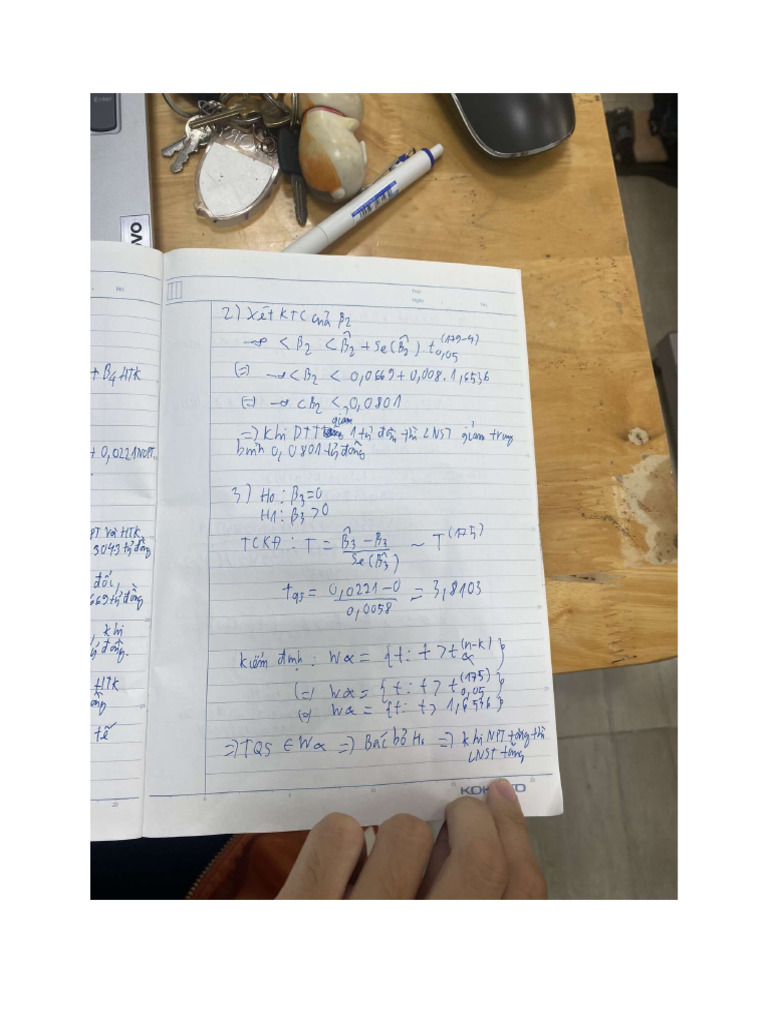 NOVO
+ β4 HTK
+ 0,0221NPT
PT và HTK
3043 tỷ đồng
đổi,
669 tỷ đồng
khi
tỷ đồng.
HTK
tế
2) Xét KTC của β2
-∞ < β2 < β̂2 + Se(β̂2) . t0,05^(179-4)
(=) -∞ < β2 < 0,0669 + 0,008.1,6536
(=) -∞ < β2 < 0,0801
giảm
=) Khi DTT 1 tỷ đồng thì LNST giảm trung
bình 0,0801 tỷ đồng
3) H0 : β3 = 0
H1 : β3 > 0
TCKĐ : T = (β̂3 - β3) / Se(β̂3) ~ T^(175)
tqs = (0,0221 - 0) / 0,0058 = 3,8103
Kiểm định : Wα = {t : t > tα^(n-k)}
(=) Wα = {t : t > t0,05^(175)}
(=) Wα = {t : t > 1,6536}
=) TQS ∈ Wα =) Bác bỏ H0 =) khi NPT tăng thì
LNST tăng